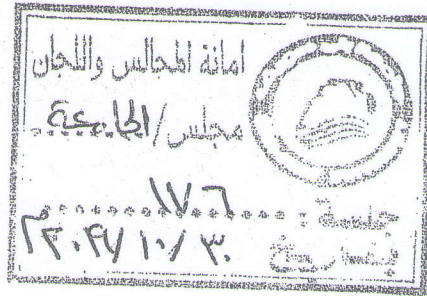 امانة المجالس واللجان
مجلس / الجامعة
جلسة : ١٧٦
بتساريخ ٣٠ / ١٠ /